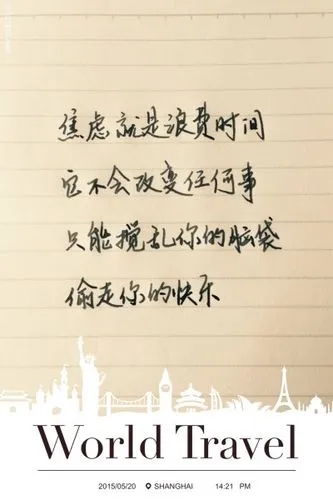 焦虑就是浪费时间
它不会改变任何事
只能搅乱你的脑袋
偷走你的快乐
World Travel
2015/05/20 SHANGHAI 14:21 PM